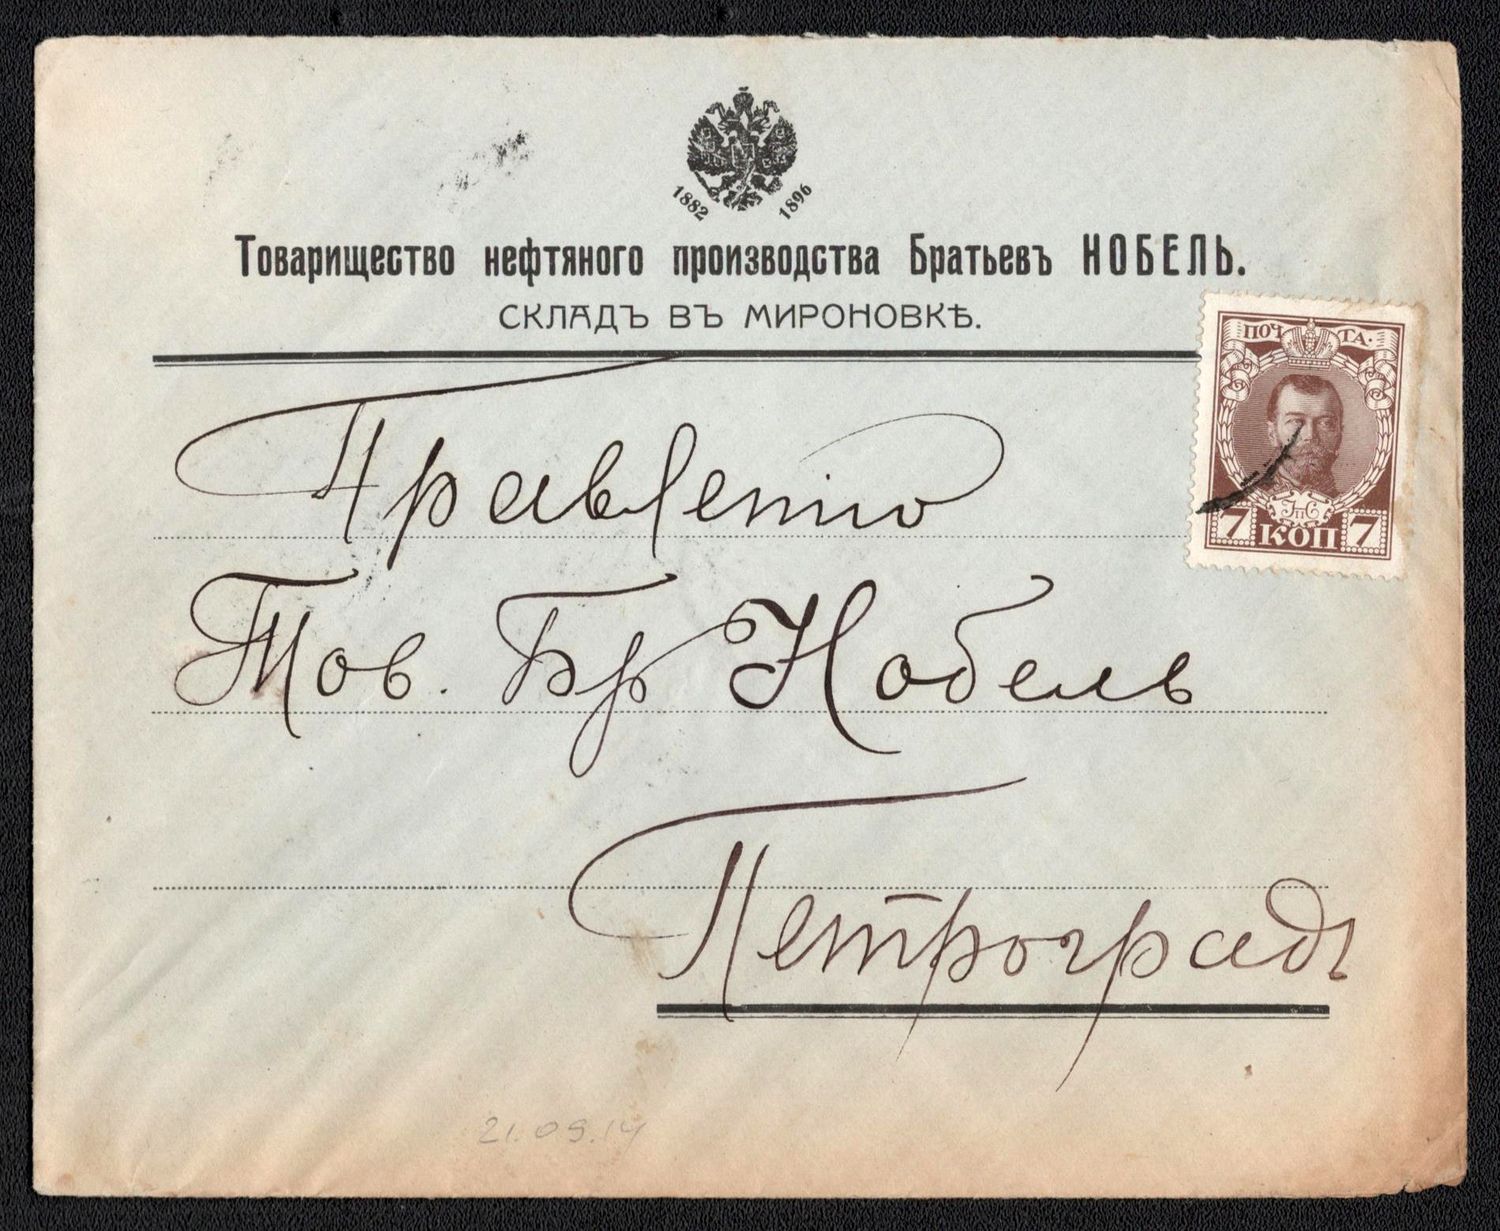 1882 1896
Товарищество нефтяного производства Братьевъ НОБЕЛЬ.
СКЛАДЪ ВЪ МИРОНОВКѢ.
ПОЧТА.
7 КОП 7
Правленію
Тов. Бр Нобель
Петроградъ
21.09.14